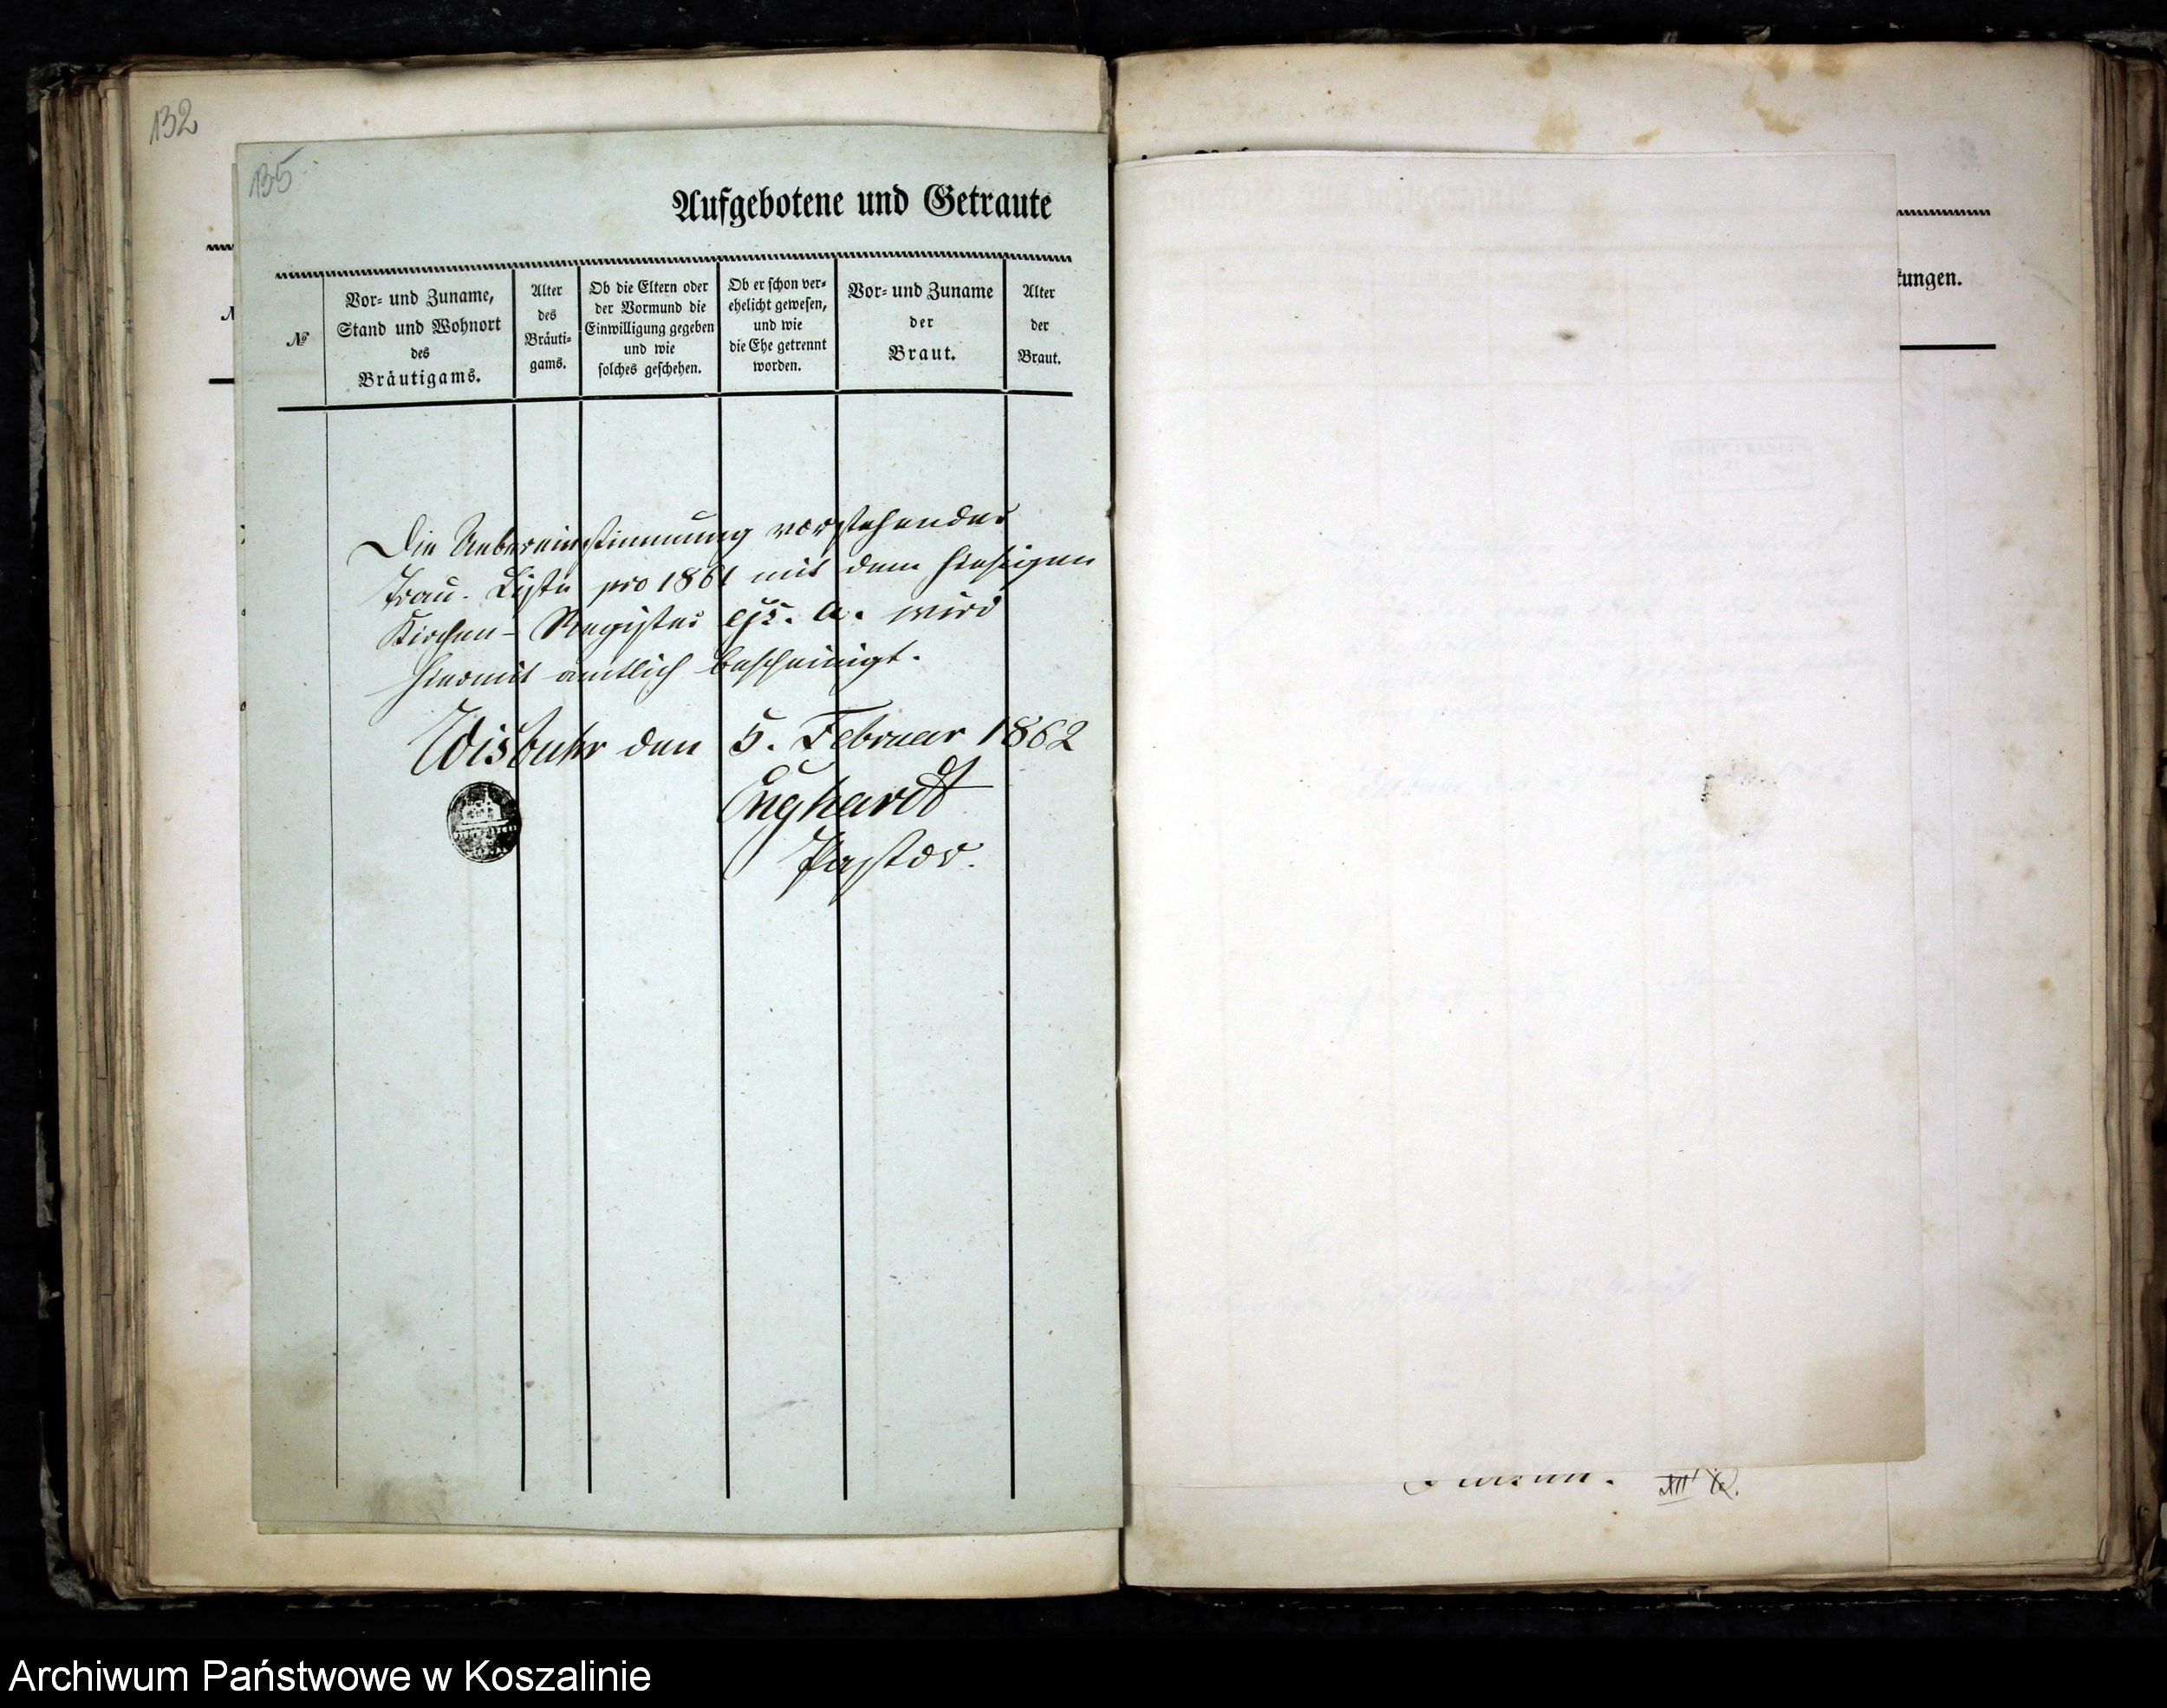 132
135
Aufgebotene und Getraute
№
Vor- und Zuname,
Stand und Wohnort
des
Bräutigams.
Alter
des
Bräuti-
gams.
Ob die Eltern oder
der Vormund die
Einwilligung gegeben
und wie
solches geschehen.
Ob er schon ver-
ehelicht gewesen,
und wie
die Ehe getrennt
worden.
Vor- und Zuname
der
Braut.
Alter
der
Braut.
Die Uebereinstimmung vorstehender
Trau-Liste pro 1861 mit dem hiesigen
Kirchen-Register ejs. a. wird
hiermit amtlich bescheinigt.
Wisbuhr den 5. Februar 1862
Enghardt
Pastor.
tungen.
Archiwum Państwowe w Koszalinie